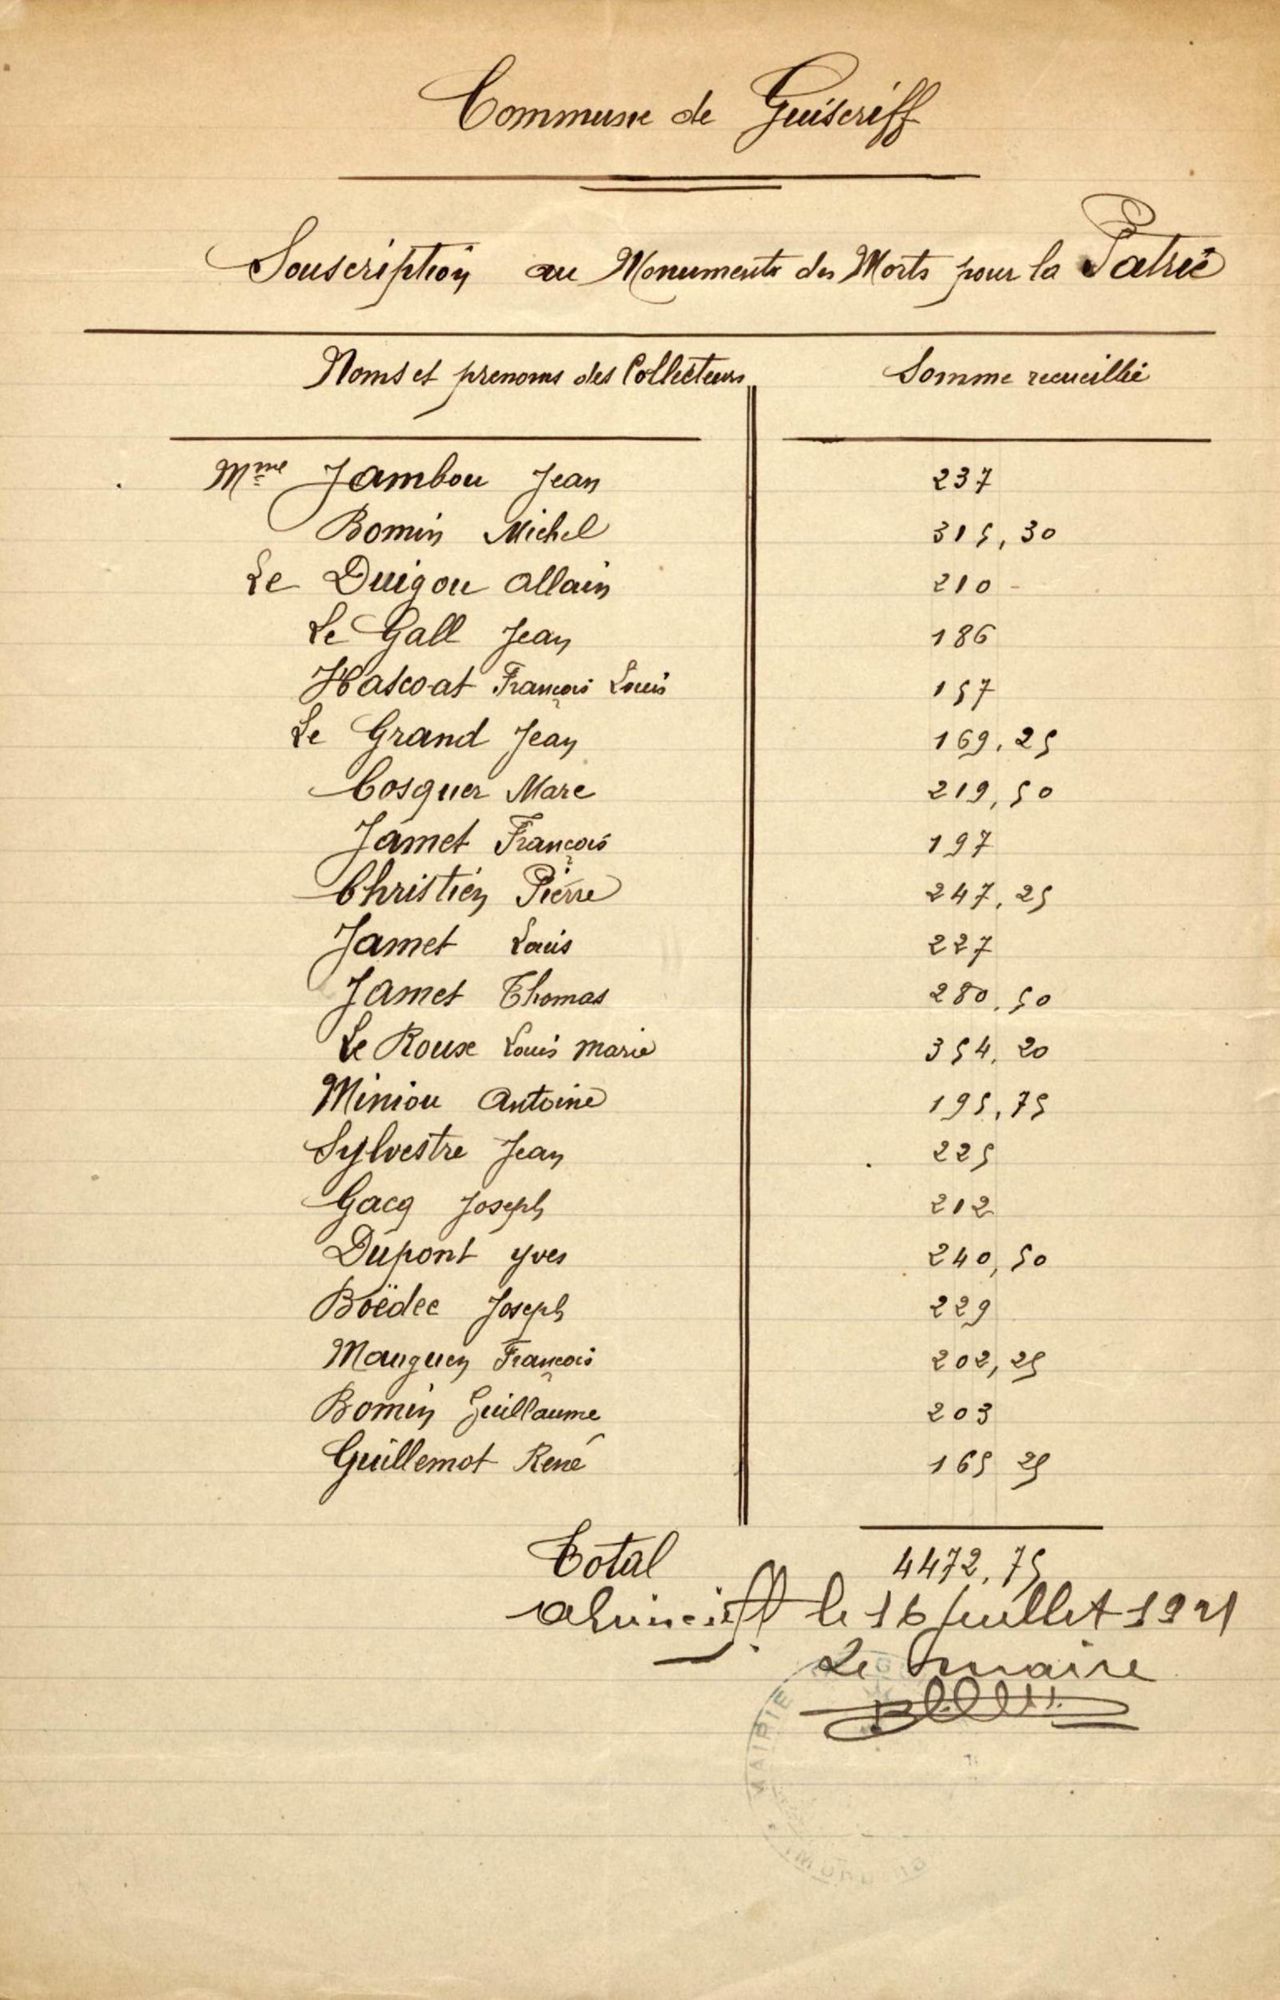 Commune de Guiscriff
Souscription au Monument des Morts pour la Patrie
Noms et prenoms des Collecteurs Somme recueillie
Mme Jambou Jean 237
Bomin Michel 315,30
Le Duigou Allain 210 -
Le Gall Jean 186
Hascoat François Louis 157
Le Grand Jean 169,25
Cosquer Marc 219,50
Jamet François 197
Christien Pierre 247,25
Jamet Louis 227
Jamet Thomas 280,50
Le Roux Louis Marie 354,20
Miniou Antoine 195,75
Sylvestre Jean 225
Gacq Joseph 212
Dupont Yves 240,50
Boëdec Joseph 229
Mauguen François 202,25
Bomin Guillaume 203
Guillemot René 165 25
Total 4472,75
le 16 juillet 1921
Le maire
MAIRIE